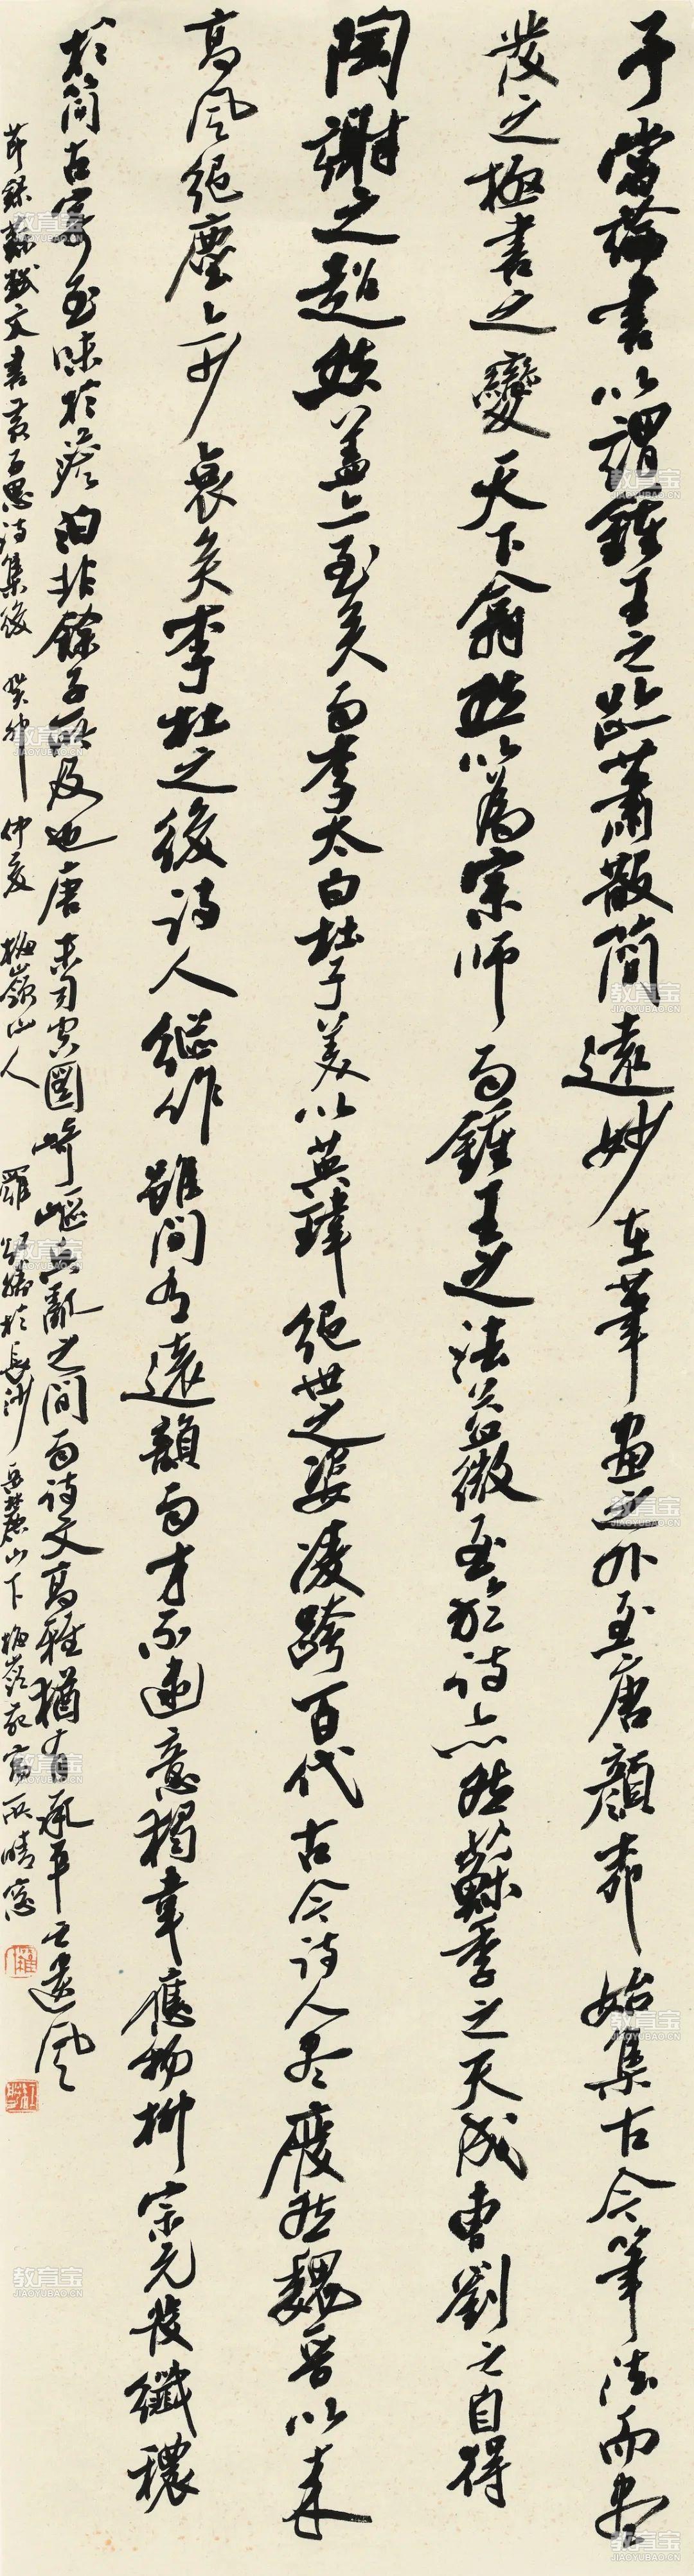 予嘗論書以謂鍾王之跡蕭散簡遠妙在筆畫之外至唐顏柳始集古今筆法而盡
發之極書之變天下翕然以為宗師而鍾王之法益微至於詩亦然蘇李之天成曹劉之自得
陶謝之超然蓋亦至矣而李太白杜子美以英瑋絕世之姿凌跨百代古今詩人盡廢然魏晉以來
高風絕塵亦少衰矣李杜之後詩人繼作雖間有遠韻而才不逮意獨韋應物柳宗元發纖穠
於簡古寄至味於澹泊非餘子所及也唐末司空圖崎嶇兵亂之間而詩文高雅猶有承平之遺風
節錄蘇軾文書黃子思詩集後 癸卯仲夏 梅嶺山人 羅紅勝於長沙岳麓山下梅嶺 雨晴窗
教育宝
JIAOYUBAO.CN